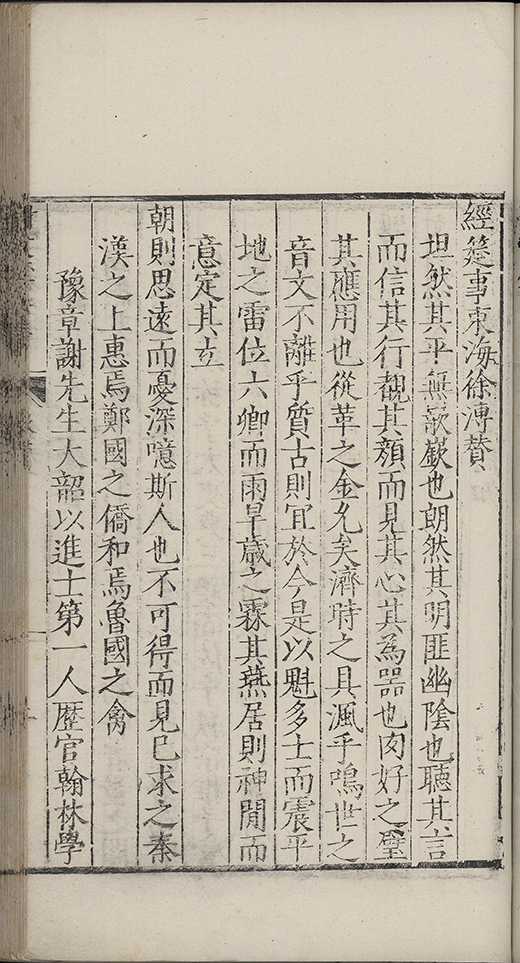 經筵事東海徐溥贊
坦然其平無嶔嶔也朗然其明匪幽陰也聽其言
而信其行覩其顏而見其心其為器也肉好之璧
其應用也從革之金允矣濟時之具渢乎鳴世之
音文不離乎質古則宜於今是以魁多士而震平
地之雷位六卿而雨旱歲之霖其燕居則神閒而
意定其立
朝則思遠而憂深噫斯人也不可得而見已求之秦
漢之上惠焉鄭國之僑和焉魯國之禽
豫章謝先生大韶以進士第一人歷官翰林學